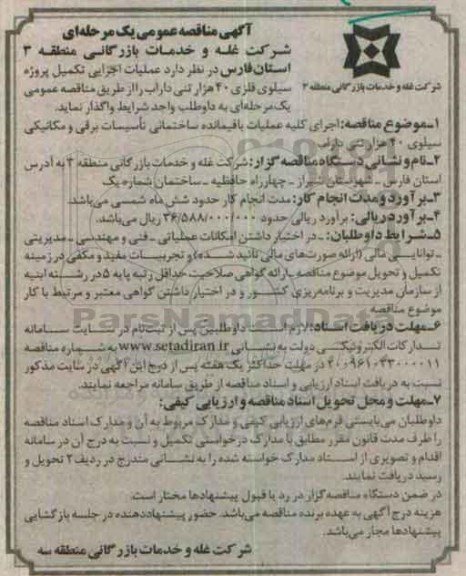 آگهی مناقصه عمومی یک مرحله‌ای
شرکت غله و خدمات بازرگانی منطقه ۳
استان فارس در نظر دارد عملیات اجرایی تکمیل پروژه
سیلوی فلزی ۴۰ هزار تنی داراب را از طریق مناقصه عمومی
یک مرحله‌ای به داوطلب واجد شرایط واگذار نماید.
شرکت غله و خدمات بازرگانی منطقه ۳
۱ـ موضوع مناقصه: اجرای کلیه عملیات باقیمانده ساختمانی تأسیسات برقی و مکانیکی
سیلوی ۴۰ هزار تنی داراب
۲ـ نام و نشانی دستگاه مناقصه گزار: شرکت غله و خدمات بازرگانی منطقه ۳ به آدرس
استان فارس ـ شهرستان شیراز ـ چهارراه حافظیه ـ ساختمان شماره یک
۳ـ برآورد و مدت انجام کار: مدت انجام کار حدود شش ماه شمسی می‌باشد.
۴ـ برآورد ریالی: برآورد ریالی حدود ۳۶/۵۸۸/۰۰۰/۰۰۰ ریال می‌باشد.
۵ـ شرایط داوطلبان: ـ در اختیار داشتن امکانات عملیاتی ـ فنی و مهندسی ـ مدیریتی
ـ توانایی مالی (ارائه صورت‌های مالی تائید شده) و تجربیات مفید و مکفی در زمینه
تکمیل و تحویل موضوع مناقصه ـ ارائه گواهی صلاحیت حداقل رتبه پایه ۵ در رشته ابنیه
از سازمان مدیریت و برنامه‌ریزی کشور و در اختیار داشتن گواهی معتبر و مرتبط با کار
موضوع مناقصه
ParsNamadData
۶ـ مهلت دریافت اسناد: لازم است داوطلبین پس از ثبت‌نام در سایت سامانه
تدارکات الکترونیکی دولت به نشانی www.setadiran.ir به شماره مناقصه
۲۰۰۹۶۱۰۴۳۰۰۰۰۱۱ در مهلت حداکثر یک هفته پس از درج این آگهی در سایت مذکور
نسبت به دریافت اسناد ارزیابی و اسناد مناقصه از طریق سامانه مراجعه نمایند.
۷ـ مهلت و محل تحویل اسناد مناقصه و ارزیابی کیفی:
داوطلبان می‌بایستی فرم‌های ارزیابی کیفی و مدارک مربوط به آن و مدارک اسناد مناقصه
را ظرف مدت قانون مقرر مطابق با مدارک درخواستی تکمیل و نسبت به درج آن در سامانه
اقدام و تصویری از اسناد مدارک خواسته شده را به نشانی مندرج در ردیف ۲ تحویل و
رسید دریافت نمایند.
در ضمن دستگاه مناقصه‌گزار در رد یا قبول پیشنهادها مختار است.
هزینه درج آگهی به عهده برنده مناقصه می‌باشد. حضور پیشنهاددهنده در جلسه بازگشایی
پیشنهادها مجاز می‌باشد.
شرکت غله و خدمات بازرگانی منطقه سه